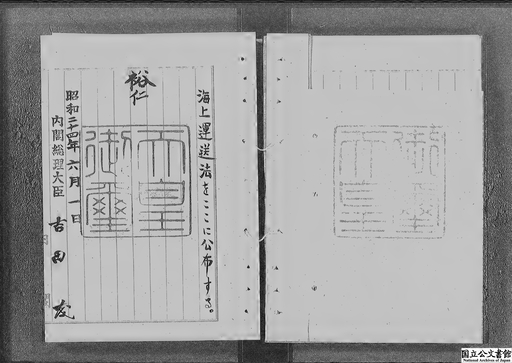 海上運送法をここに公布する。
裕仁
天皇御璽
昭和二十四年六月一日
内閣総理大臣 吉田茂
国立公文書館
National Archives of Japan